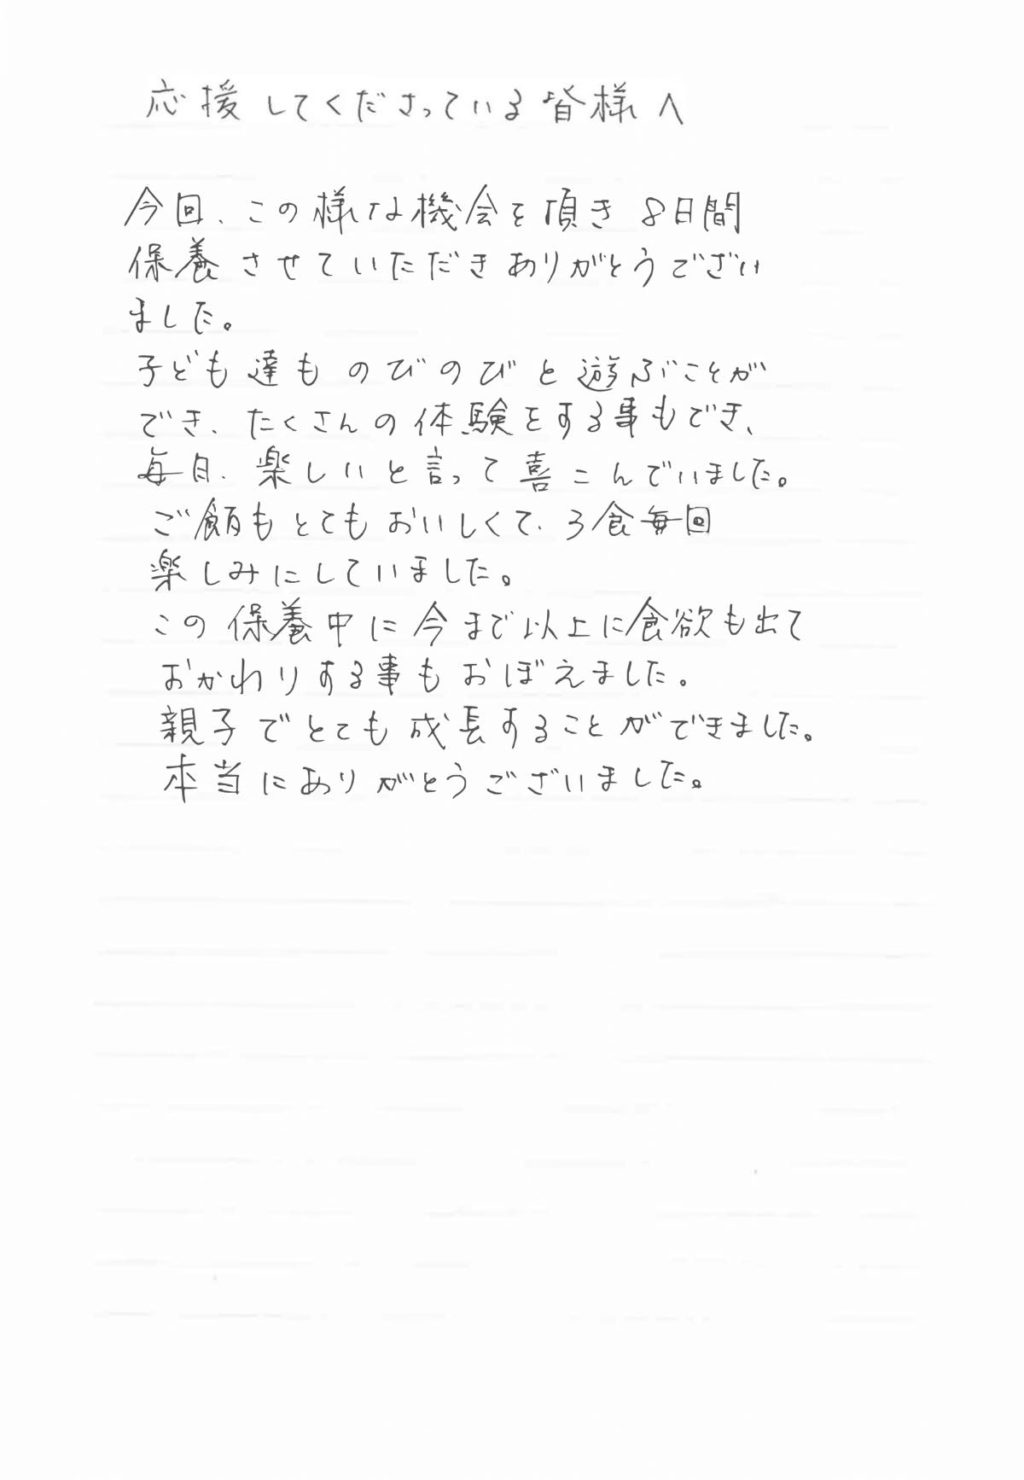 応援してくださっている皆様へ
今回、この様な機会を頂き8日間
保養させていただきありがとうござい
ました。
子ども達ものびのびと遊ぶことが
でき、たくさんの体験をする事もでき、
毎日、楽しいと言って喜こんでいました。
ご飯もとてもおいしくて、3食毎回
楽しみにしていました。
この保養中に今まで以上に食欲も出て
おかわりする事もおぼえました。
親子でとても成長することができました。
本当にありがとうございました。